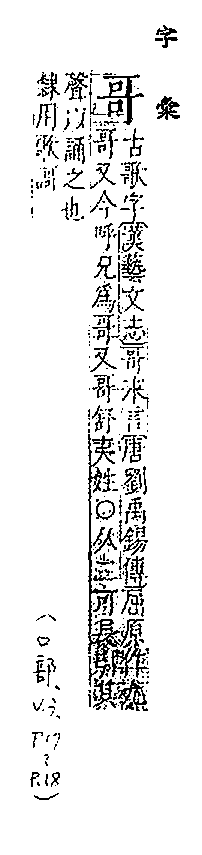 字彙
哥
古歌字漢藝文志哥永言唐劉禹錫傳屈原作
哥又今呼兄爲哥又哥舒夷姓○从二可長引其
聲以誦之也
隸用歌謌
(口部、V.3, P.17~P.18)